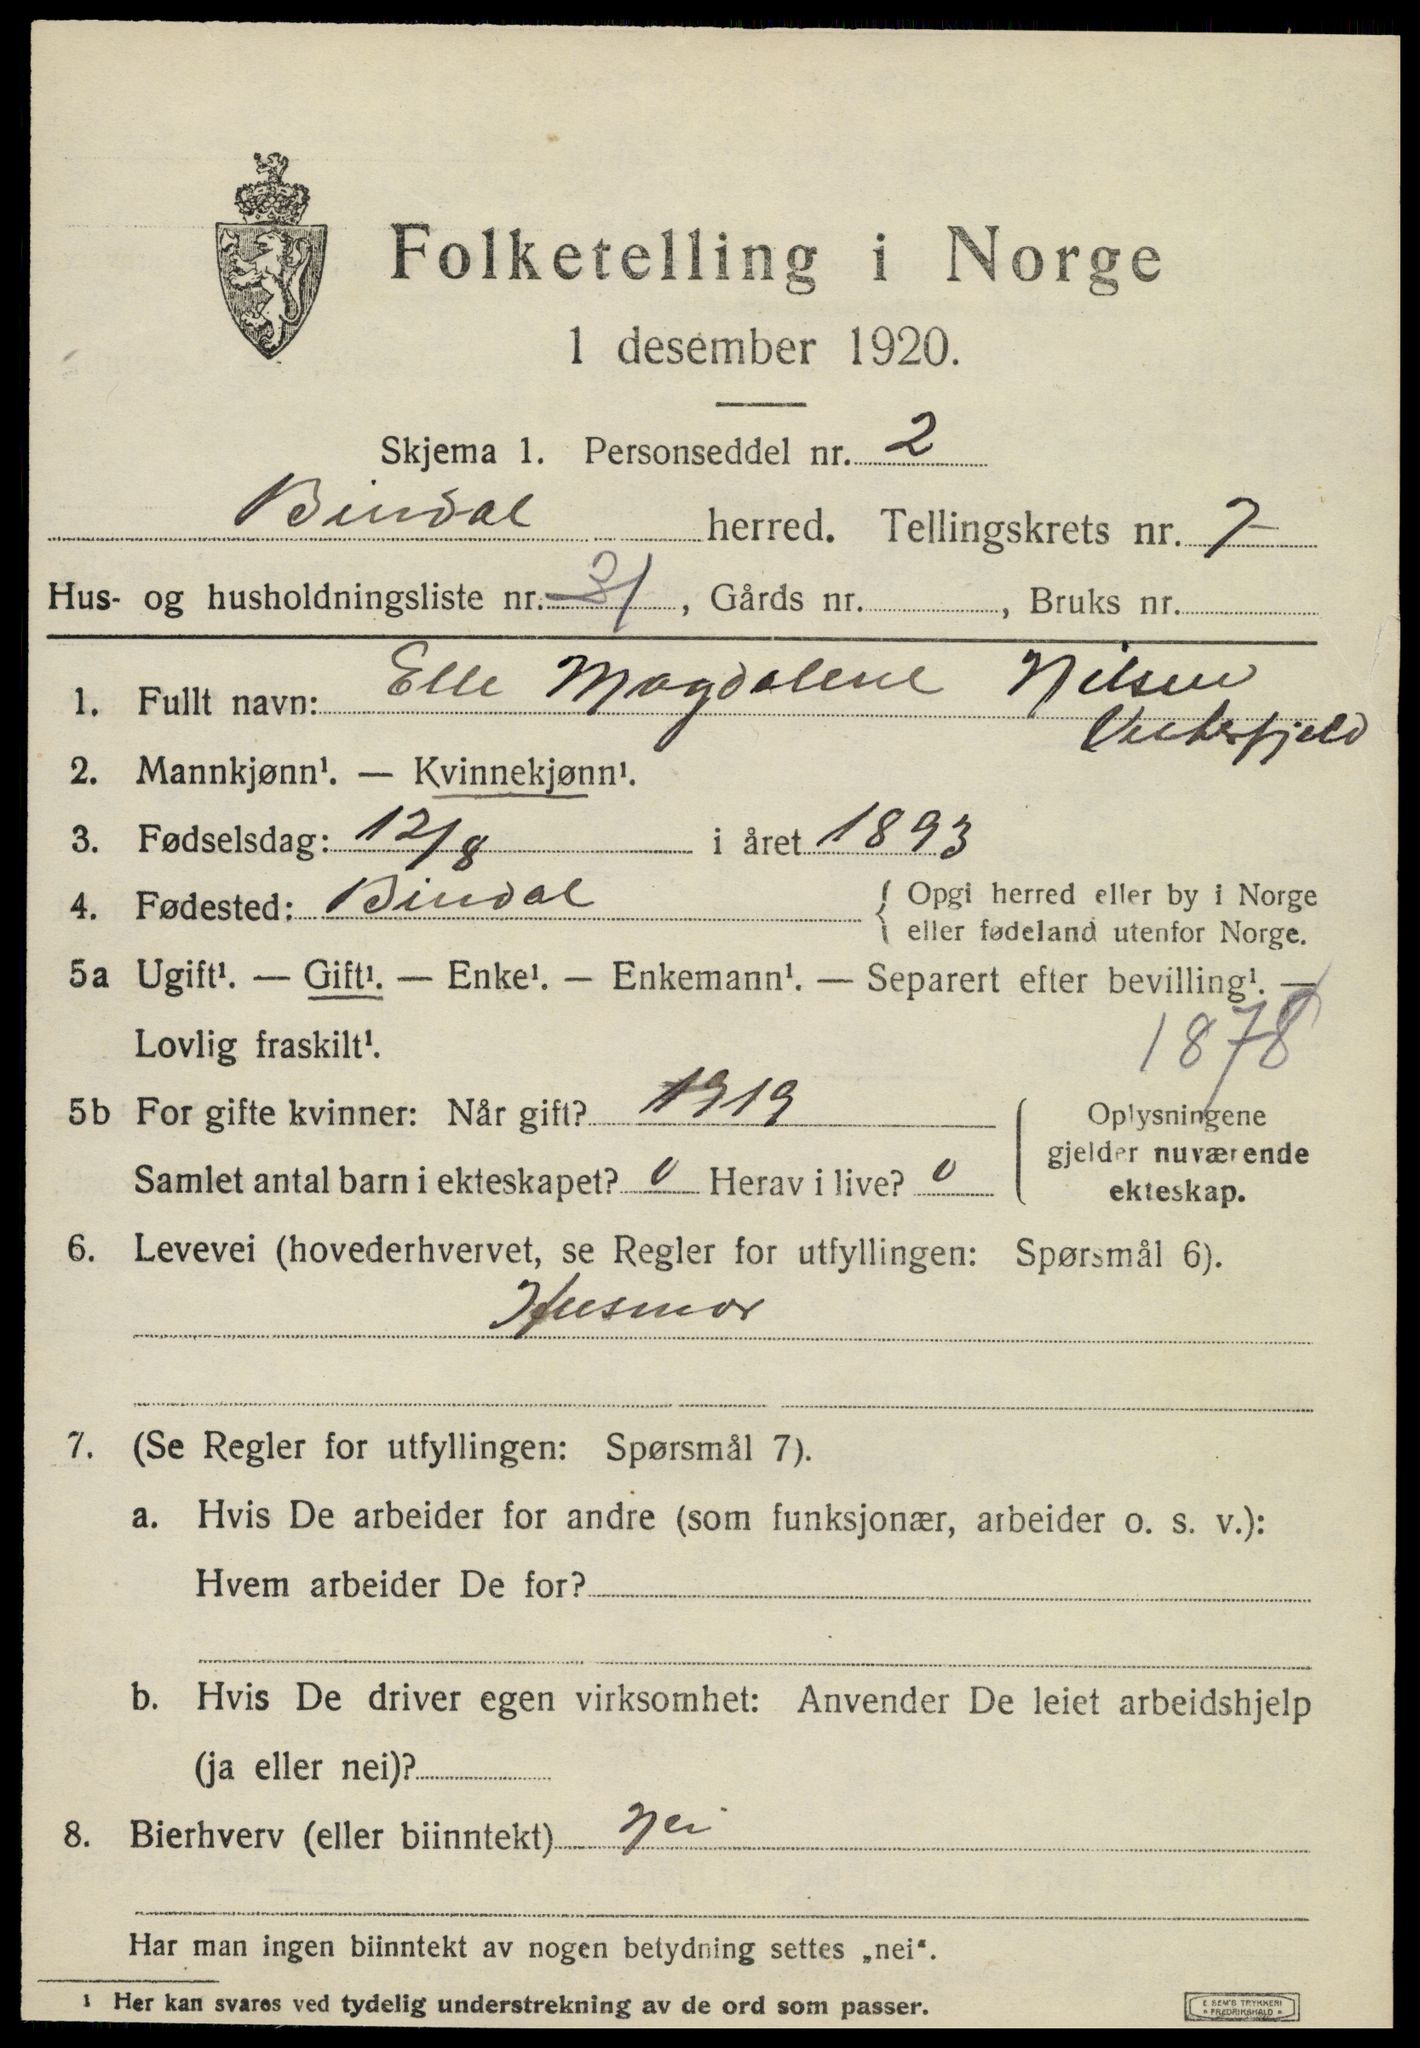 Folketelling i Norge
1 desember 1920.
Skjema 1. Personseddel nr. 2
Bindal herred. Tellingskrets nr. 7
Hus- og husholdningsliste nr. 31, Gårds nr. , Bruks nr.
1. Fullt navn: Elle Magdalene Nilsen
Vesterfjeld
2. Mannkjønn¹. — Kvinnekjønn¹.
3. Fødselsdag: 12/8 i året 1893
4. Fødested: Bindal { Opgi herred eller by i Norge
eller fødeland utenfor Norge.
5a Ugift¹. — Gift¹. — Enke¹. — Enkemann¹. — Separert efter bevilling¹. —
Lovlig fraskilt¹. 1878
5b For gifte kvinner: Når gift? 1919
Samlet antal barn i ekteskapet? 0 Herav i live? 0
Oplysningene
gjelder nuværende
ekteskap.
6. Levevei (hovederhvervet, se Regler for utfyllingen: Spørsmål 6).
Husmor
7. (Se Regler for utfyllingen: Spørsmål 7).
a. Hvis De arbeider for andre (som funksjonær, arbeider o. s. v.):
Hvem arbeider De for?
b. Hvis De driver egen virksomhet: Anvender De leiet arbeidshjelp
(ja eller nei)?
8. Bierhverv (eller biinntekt) Nei
Har man ingen biinntekt av nogen betydning settes „nei“.
¹ Her kan svares ved tydelig understrekning av de ord som passer.
E. SEM'S TRYKKERI
FREDRIKSHALD